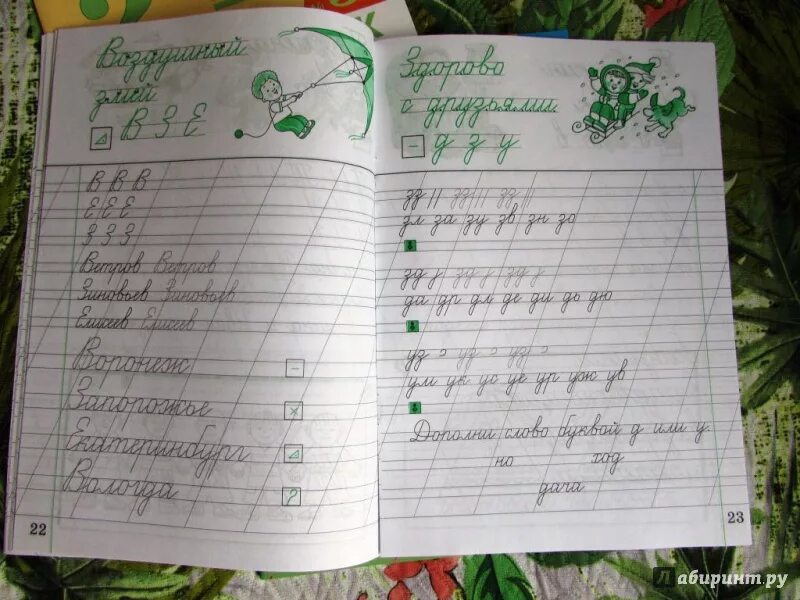 Воздушный
змей
В З Е
В В В
Е Е Е
З З З
Ветров Ветров
Зиновьев Зиновьев
Елисеев Елисеев
Воронеж
Запорожье
Екатеринбург
Вологда
?
22
Здорово
с друзьями
д з у
зл за зу зв зн зо
да др дл де ди дь дю
ум ук ус уе ур уж ув
Дополни слово буквой д или у.
но ход
дача
23
Лабиринт.ру